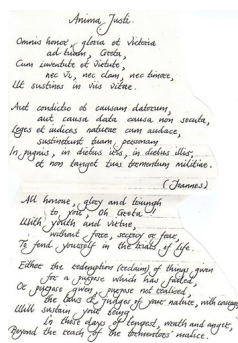 Anima Justi.
Omnis honor, gloria et Victoria
ad tuam, Greta,
Cum iuventute et Virtute,
nec Vi, nec clam, nec timore,
Ut sustines in viis vitae.
Aut condictio ob causam datorum,
aut causa data causa non secuta,
Leges et iudices naturae cum audace,
sustinebunt tuam, personam
In pugnis, in diebus ictus, in diebus illis;
et non tanget tus tormentum militiae.
(Joannes)
All honour, glory and triumph
to you, Oh Greta
With youth and virtue,
without force, secrecy or fear,
To fend yourself in the roads of life.
Either the redemption (reclaim) of things given
for a purpose which has failed,
Or purpose given, purpose not realised,
the laws & judges of your nature, with courage
Will sustain your being
In these days of tempest, wrath and anger,
Beyond the reach of the tormentors' malice.